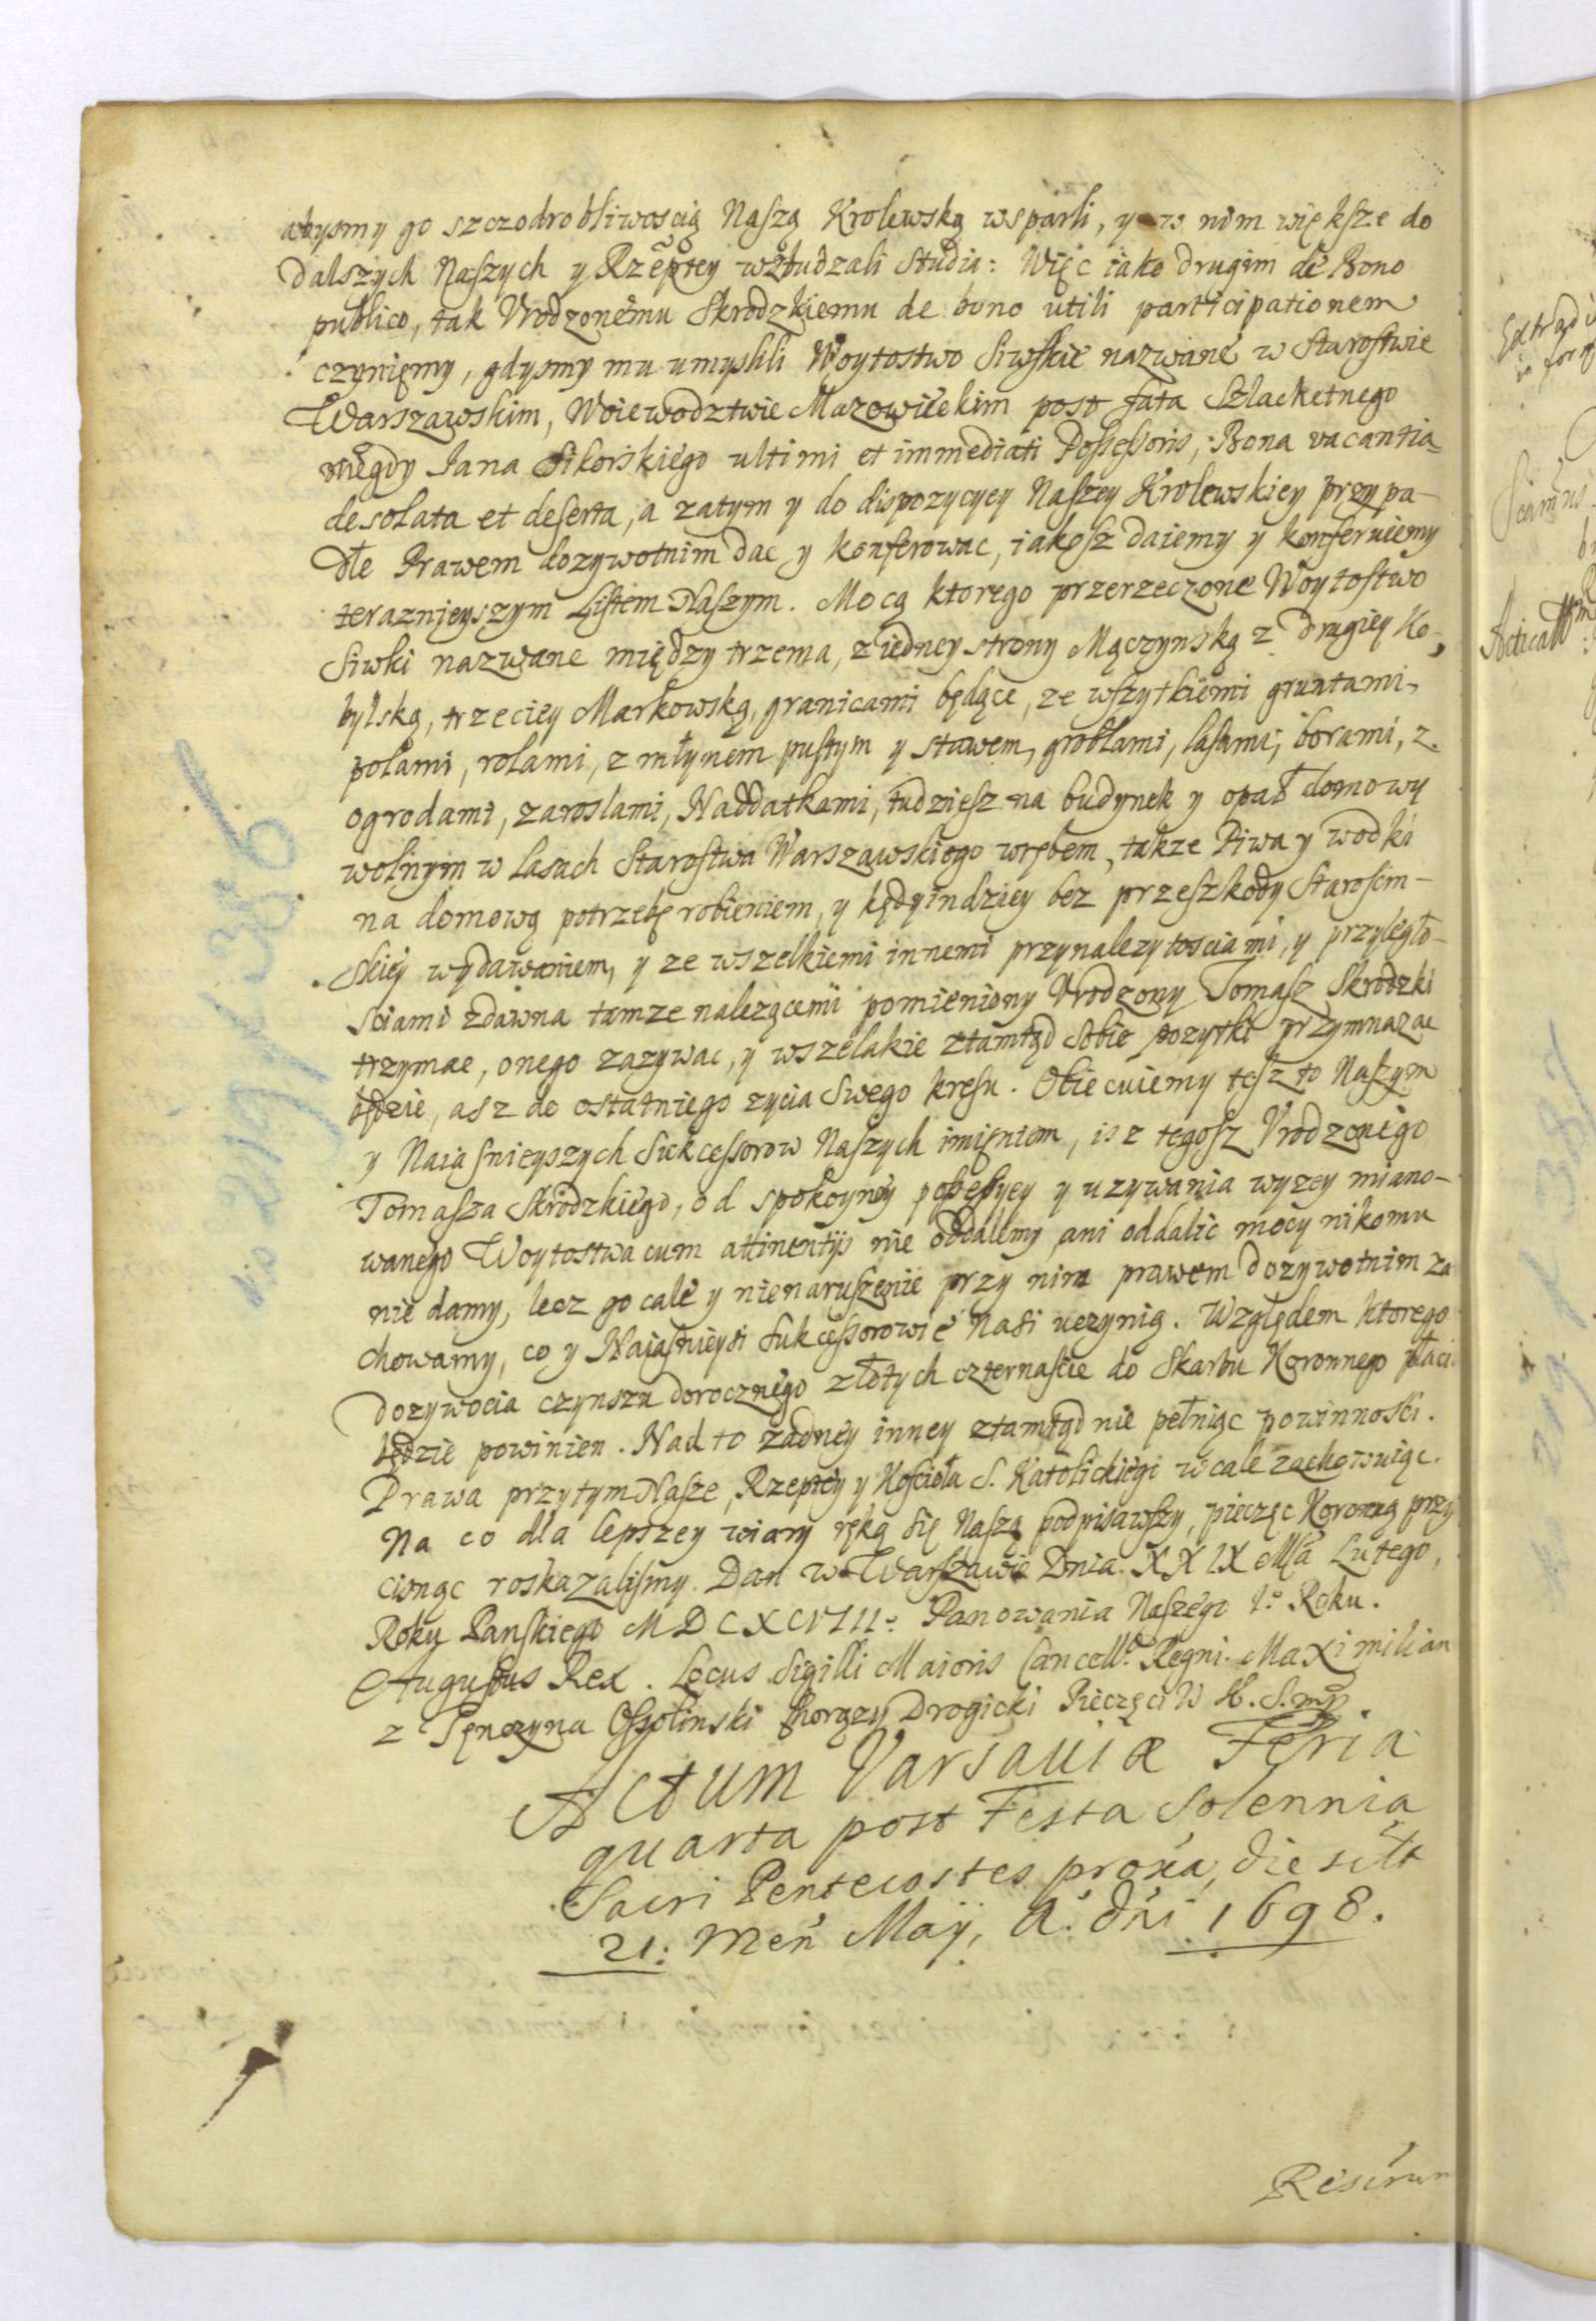 abysmy go szczodrobliwoscią Naszą Krolewską wsparli, y w nim większe do
dalszych Naszych y Rzeptey wzbudzali studia: Więc iako drugim de Bono
publico, tak Vrodzonemu Skrodzkiemu de bono utili participationem
czyniemy, gdysmy mu umyslili Woytostwo Siwskie nazwane w Starostwie
Warszawskim, Woiewodztwie Mazowieckim post fata Szlachetnego
niegdy Iana Sikorskiego ultimi et immediati Possessoris, Bona vacantia
desolata et deserta, a zatym y do dispozycyey Naszey Krolewskiey przypa-
dłe Prawem dozywotnim dac y konferowac, iakosz daiemy y konferuiemy
teraznieyszym Listem Naszym. Mocą ktorego przerzeczone Woytostwo
Siwki nazwane między trzema, z iedney strony Mączynską z drugiey Ko-
bylską, trzeciey Markowską, granicami będące, ze wszytkiemi gruntami,
polami, rolami, z młynem pustym y stawem, groblami, lasami, borami, z
ogrodami, zaroslami, Naddatkami, tudziesz na budynek y opał domowy
wolnym w lasach Starostwa Warszawskiego wrębem, takze Piwa y wodki
na domową potrzebę robieniem, y kędyindziey bez przeszkody Staroscin-
skiey wydawaniem, y ze wszelkiemi innemi przynalezytosciami, y przyległo-
sciami zdawna tamze nalezącemi pomieniony Vrodzony Tomasz Skrodzki
trzymac, onego zazywac, y wszelakie ztamtąd sobie pozytki przymnazac
będzie, asz do ostatniego zycia swego kresu. Obiecuiemy tesz to Naszym
y Naiasnieyszych Sukcessorow Naszych imieniem, isz tegosz Vrodzonego
Tomasza Skrodzkiego, od spokoyney possessyey y uzywania wyzey miano-
wanego Woytostwa cum attinentijs nie oddalemy ani oddalic mocy nikomu
nie damy, lecz go cale y nienaruszenie przy nim prawem dozywotnim za
chowamy, co y Naiasnieysi Sukcessorowie Nasi uczynią. Względem ktorego
dozywocia czynszu dorocznego złotych czternascie do Skarbu Koronnego płaci
będzie powinien. Nad to zadney inney ztamtąd nie pełniąc powinnosci.
Prawa przytym Nasze, Rzeptey y Kosciola S. Katolickiego wcale zachowuiąc.
Na co dla lepszey wiary ręką się Naszą podpisawszy, pieczęc Koronną przy
cisnąc roskazalismy. Dan w Warszawie Dnia. XXIX Mca Lutego,
Roku Panskiego MDCXCVIII. Panowania Naszego 1.o Roku.
Augustus Rex. Locus Sigilli Maioris Cancell. Regni. Maximilian
z Tęnczyna Ossolinski Chorązy Drogicki Pieczęci W K. S. mp.
Actum Varsaviæ Feria
quarta post Festa Solennia
Sacri Pentecostes proxa, die scilt
21. Men Maij, A. dni 1698.